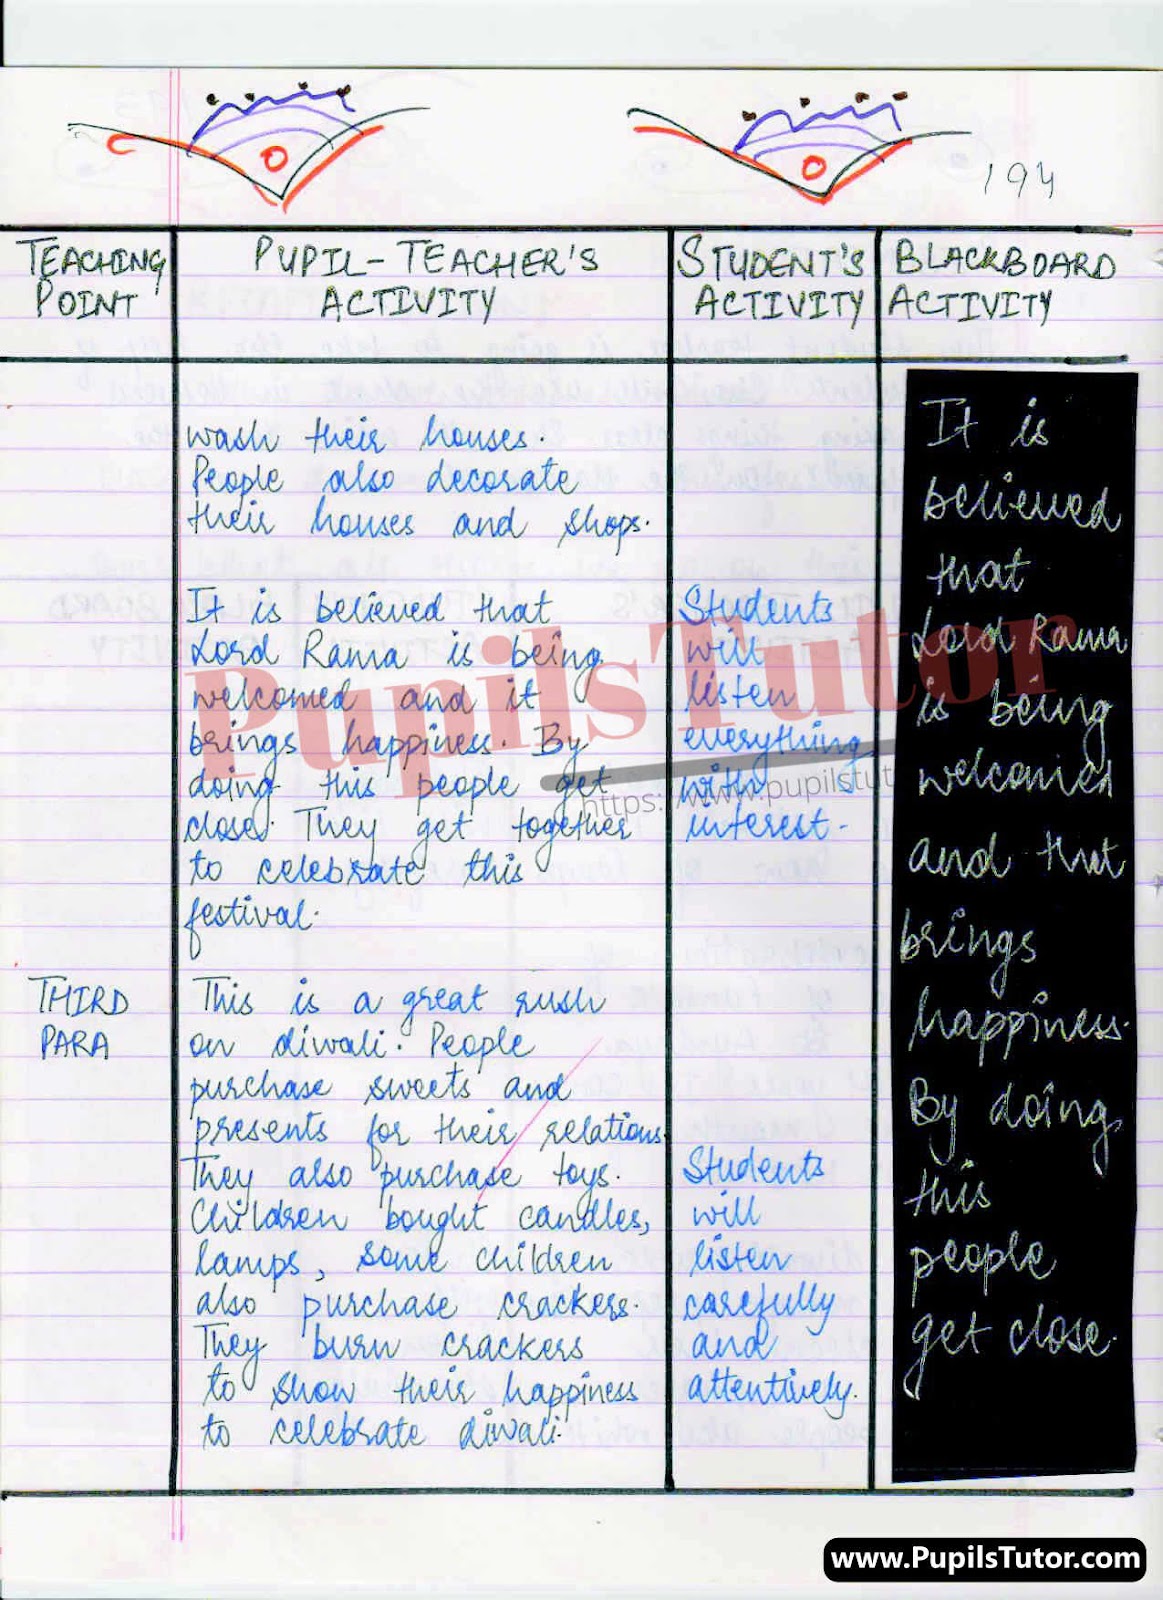 194
TEACHING
POINT
PUPIL-TEACHER'S
ACTIVITY
STUDENT'S
ACTIVITY
BLACKBOARD
ACTIVITY
wash their houses.
People also decorate
their houses and shops.
It is believed that
Lord Rama is being
welcomed and it
brings happiness. By
doing this people get
close. They get together
to celebrate this
festival.
Students
will
listen
everything
with
interest.
THIRD
PARA
This is a great rush
on diwali. People
purchase sweets and
presents for their relations
They also purchase toys.
Children bought candles,
lamps, some children
also purchase crackers.
They burn crackers
to show their happiness
to celebrate diwali.
Students
will
listen
carefully
and
attentively.
It is
believed
that
Lord Rama
is being
welcomed
and that
brings
happiness.
By doing
this
people
get close.
PupilsTutor
www.PupilsTutor.com